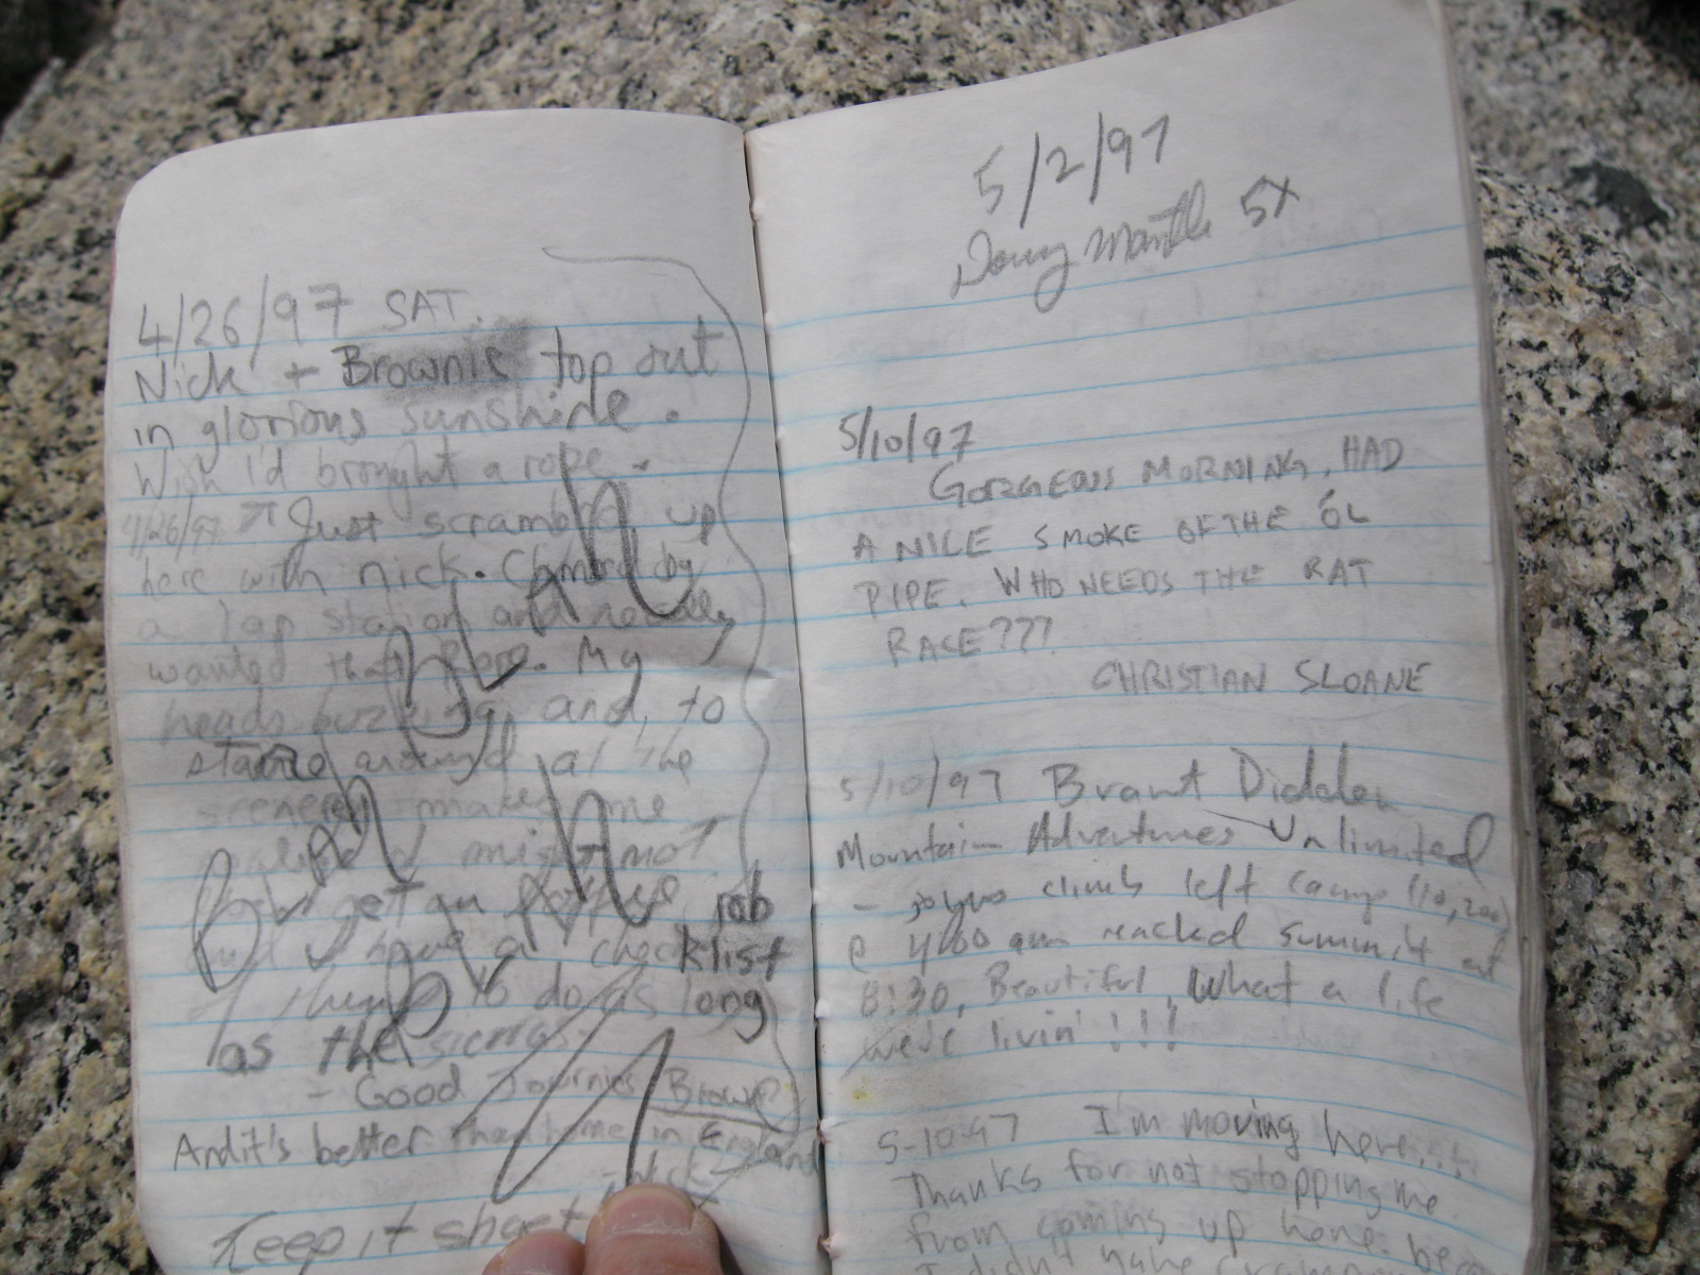 4/26/97 SAT.
Nick + Brownie top out
in glorious sunshine.
Wish I'd brought a rope.
4/26/97 Just scrambled up
here with nick. Climbed by
a rap station and really
wanted that Rope. My
heads buzzing, and, to
stare around at the
scenery makes me
realise I might not
get an job
I have a checklist
of things to do as long
as the sierras
- Good Journies Brownie
And it's better than home in England
- Nick
Keep it short
5/2/97
Doug Mantle 5X
5/10/97
GORGEOUS MORNING, HAD
A NICE SMOKE OF THE ÓL
PIPE. WHO NEEDS THE RAT
RACE???
CHRISTIAN SLOANE
5/10/97 Brant
Mountain Adventures Unlimited
- joyus climb left camp (10,200)
@ 4:00 am reached summit at
8:30, Beautiful, What a life
we're livin'!!!
5-10-97 I'm moving here...
Thanks for not stopping me
from coming up here.
I didn't have